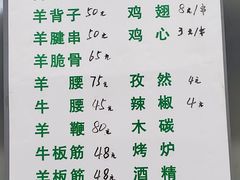 羊背子 50元 鸡翅 8元/串
羊腱串 50元 鸡心 3元/串
羊脆骨 65元
羊腰 75元 孜然 4元
牛腰 45元 辣椒 4元
羊鞭 80元 木碳
牛板筋 48元 烤炉
羊板筋 48元 酒精